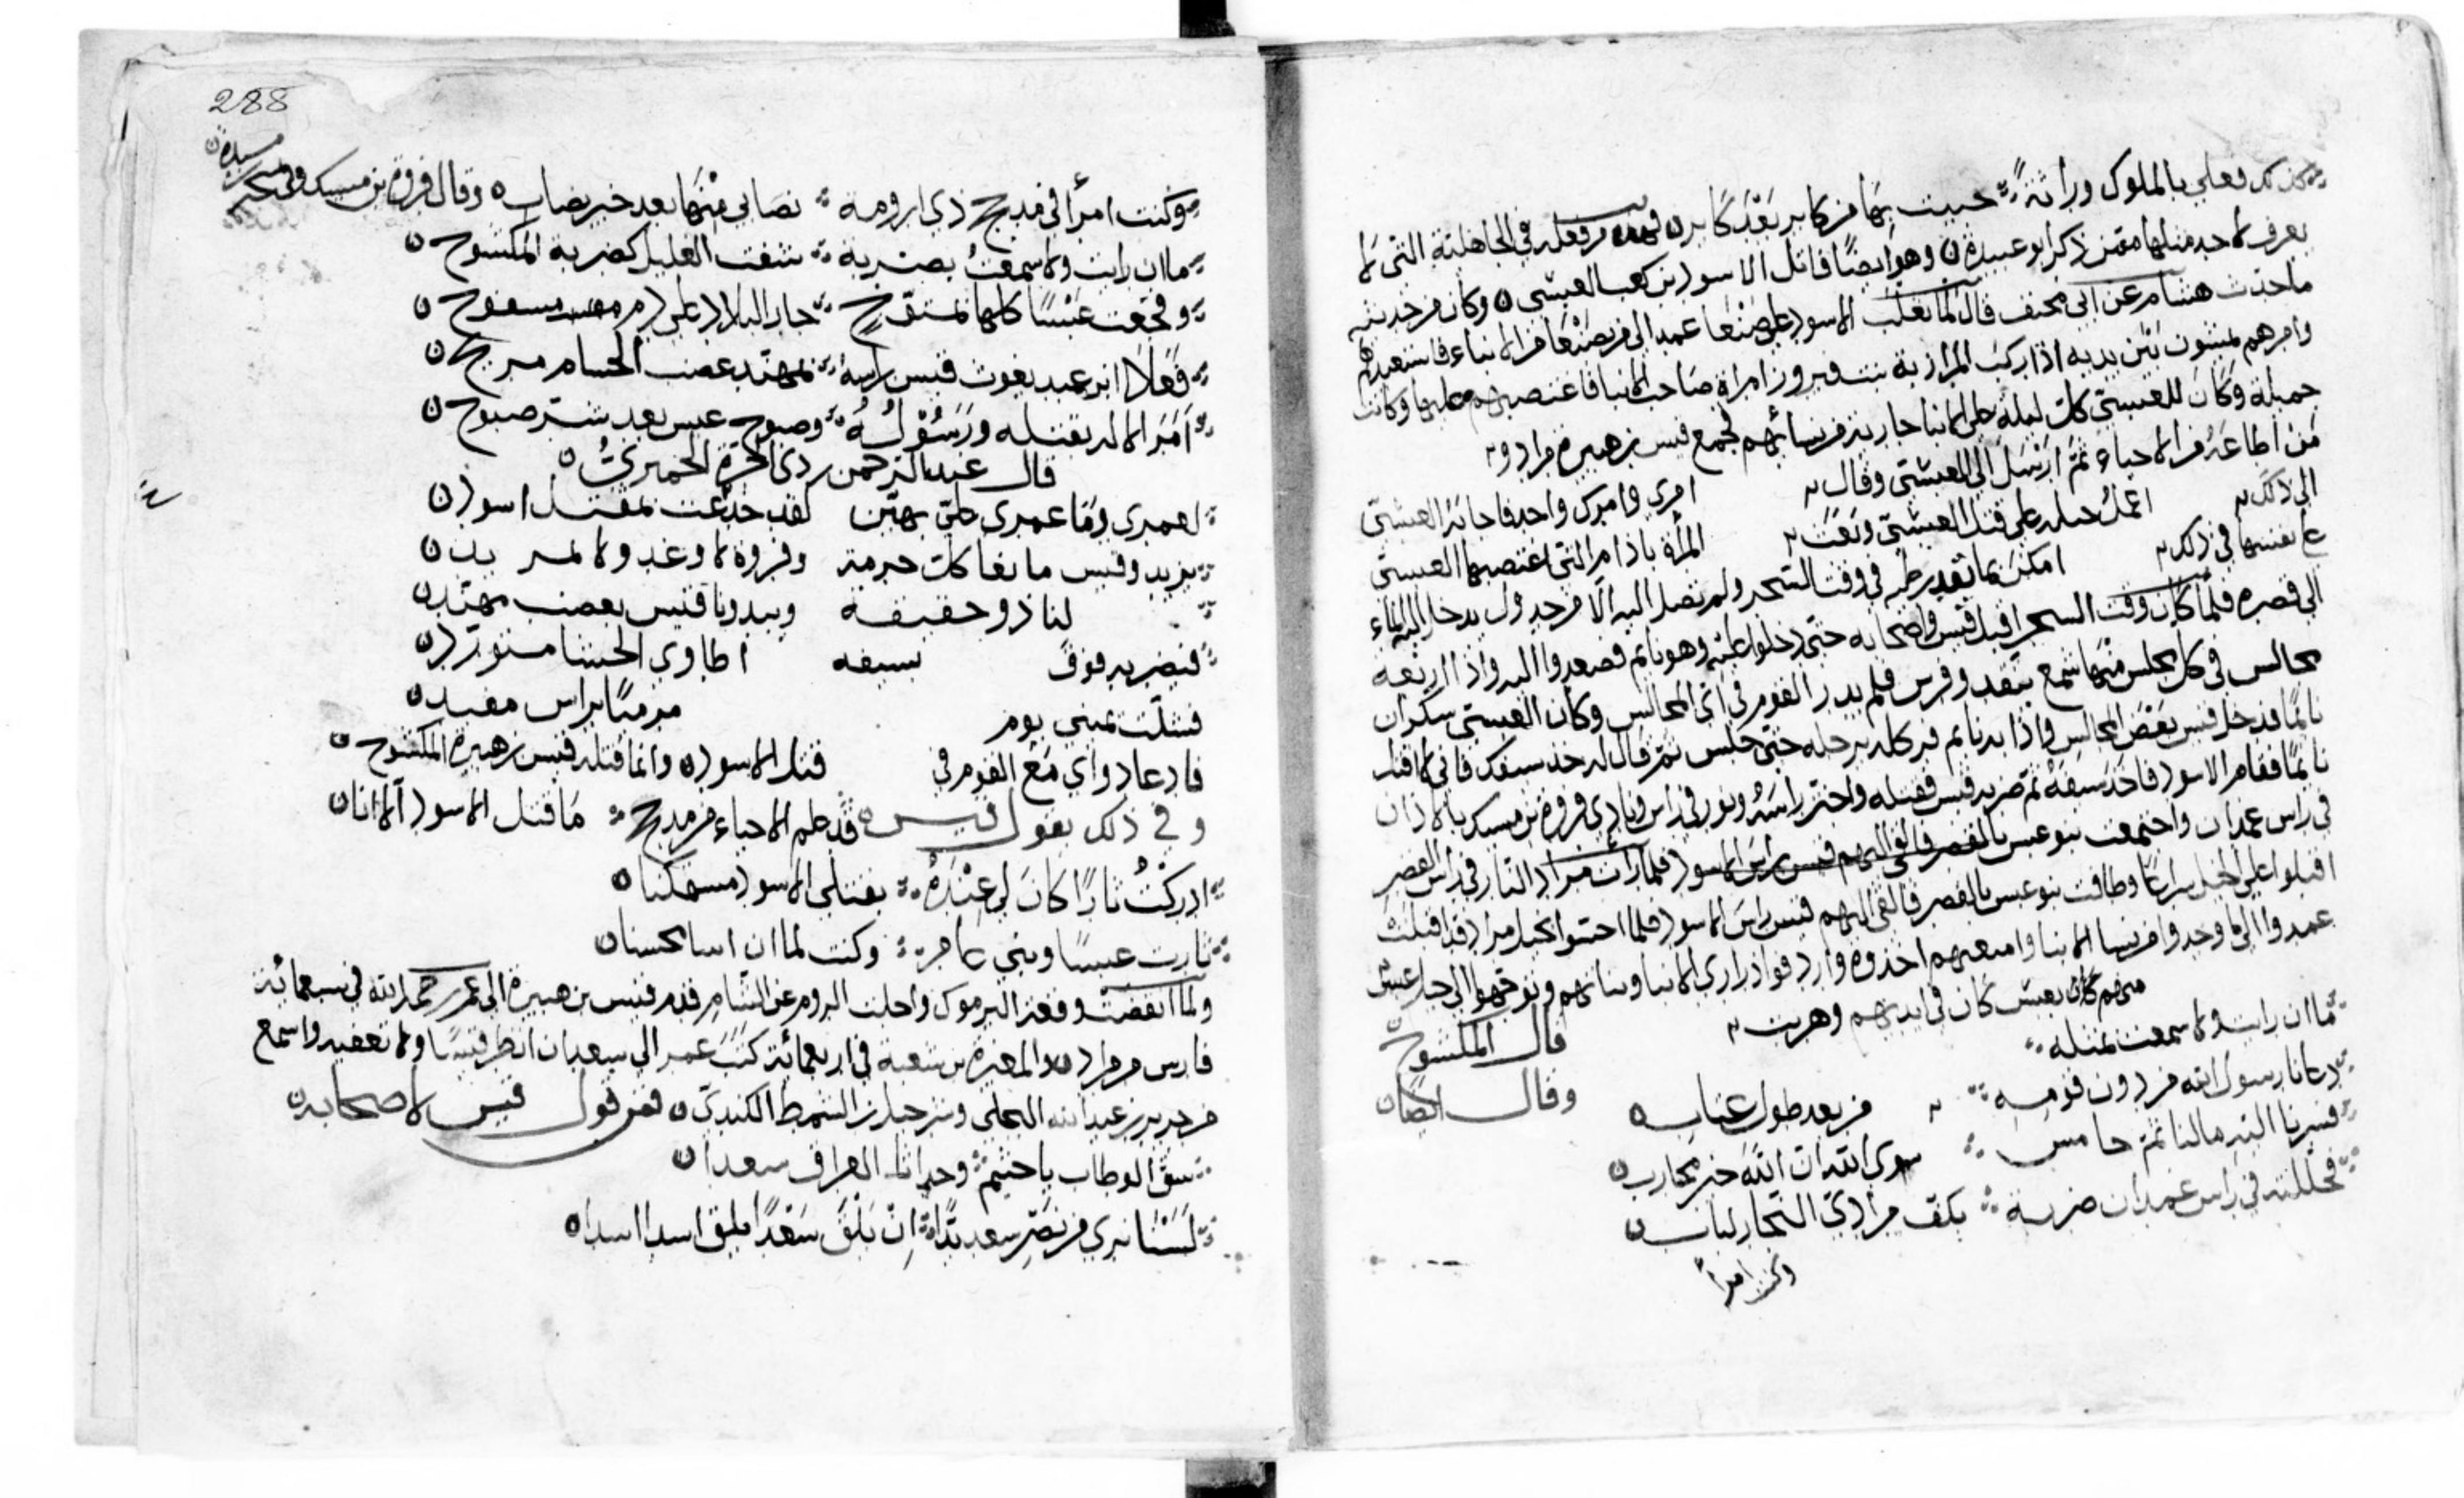 كذلك فعلي بالملوك وراثة حبيت بها من كابر بعد كابر فهذه من فعله في الجاهلية التي لم
يعرف لاحد مثلها ممن ذكر ابو عبيدة وهو ايضا قاتل الاسود بن كعب العبسي وكان من حديثه
ما حدث هشام عن ابي مخنف قال لما تغلب الاسود على صنعا عمد الى من بصنعا من الابناء فاستعبدهم
وامرهم يمشون بين يديه اذا ركب المرازبة بنت فيروز امراة صاحب الابنا فاغتصبهم عليها وكانت
جميلة وكان للعبسي كل ليلة على الابنا جارية من نسائهم فجمع قيس بن هبيرة مراد و
من اطاعه من الاحياء ثم ارسل الى العبسي وقال امري وامرك واحد فاجابه العبسي
الى ذلك اعمل حيله على قتل العبسي وبعث المرأة باذام التي اغتصبها العبسي
على نفسها في ذلك امكن ما تقدر عليه في وقت السحر ولم نصل اليه الا من جدول يدخل اليه الماء
الى قصره فلما كان وقت السحر اقبل قيس واصحابه حتى دخلوا عليه وهو نايم فصعدوا اليه واذا اربعة
مجالس في كل مجلس منها شمع يتقد وفرس فلم يدر القوم في اي المجالس وكان العبسي سكران
نايما فدخل قيس بعض المجالس واذا به نايم فركله برجله حتى جلس ثم قال له خذ سيفك فاني لا اقتل
نايما فقام الاسود فاخذ سيفه ثم ضربه قيس فقتله واحتز راسه ونور في راس ونادى فروة بن مسيك بالاذان
في راس عمدان واجتمعت بنو عبس بالقصر فالقى اليهم قيس راس الاسود فلما رات مراد النار في راس القصر
اقبلوا على الخيل سراعا وطافت بنو عبس بالقصر فالقى اليهم قيس راس الاسود فلما احسوا بخيل مراد قد اقبلت
عمدوا الى ما وجدوا من نسا الابنا وامتعتهم اخذوه واردفوا ذراري الابنا وبناتهم وتوجهوا الى جبل عبس
منهم كان بعبس كان في ايديهم وهربت
ما ان رايت ولا سمعت بمثله قال المكشوح
دعانا رسول الله من دون قومه من بعد طول عتاب وقال ايضا
فسرنا اليه ما لنا ثم حامس سوى الله ان الله خير محارب
فجللته في راس عمدان ضربة بكف مرادي النجار لباب
وكنت امرأ
288
وكنت امرأ في مذحج ذي ارومة نصابي منها بعد خير نصاب وقال فروة بن مسيك وفي نحر
مسيرة
ما ان رايت ولا سمعت بضربه شفت الغليل كضربة المكشوح
وفجعت عبسا كلها بمتوج جار البلاد على دم مسفوح
فعلا ابن عبد يغوث قيس راسه بمهند عضب الحسام مريح
امر الاله بقتله ورسوله وصبوح عبس بعد شر صبوح
قال عبد الرحمن ردي الحرة الحميري
لعمري وما عمري علي بهين لقد جدعت بمقتل اسود
يزيد وقيس مانعا كل حرمة وفروة لا وغد ولا لمريد
لنا ذو حقيقة ويبدونا قيس بعضب مهند
فيضربه فوق بسيفه اطاوي الحشا متورد
فشلت يميني يوم مرميا براس مفيد
فا دعا دواي مع القوم في قتل الاسود وانما قتله قيس بن هبيرة المكشوح
وفي ذلك يقول قيس قد علم الاحياء من مذحج ما قتل الاسود الا انا
ادركت ثارا كان لي عنده بقتلي الاسود مستمكنا
ثارت عبسا وبني عامر وكنت لما ان اسا محسنا
ولما انقضت وقعة اليرموك واجلت الروم عن الشام قدم قيس بن هبيرة الى عمر رحمه الله في سبعمائة
فارس من مراد والمغيرة بن شعبة في اربعمائة كتب عمر الى سعد ان انظر قيسا ولا تعقبه واسمع
من جرير بن عبد الله البجلي وشرحبيل بن السمط الكندي فمن قول قيس لاصحابه
سق الوطاب يا خثيم وحدانا العراق سعدا
لسنا نرى من نصر سعد بدا ان يلق سعدا يلق اسدا اسدا